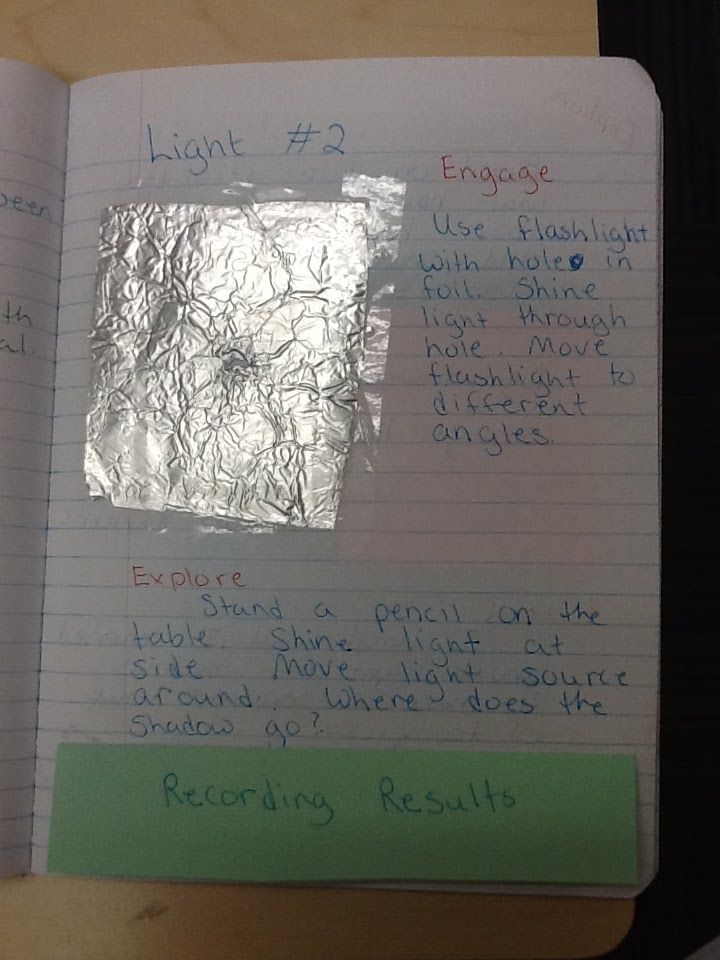 Light #2
Engage
Use flashlight
with hole in
foil. Shine
light through
hole. Move
flashlight to
different
angles.
Explore
Stand a pencil on the
table. Shine light at
side. Move light source
around. Where does the
shadow go?
Recording Results
been
th
al.